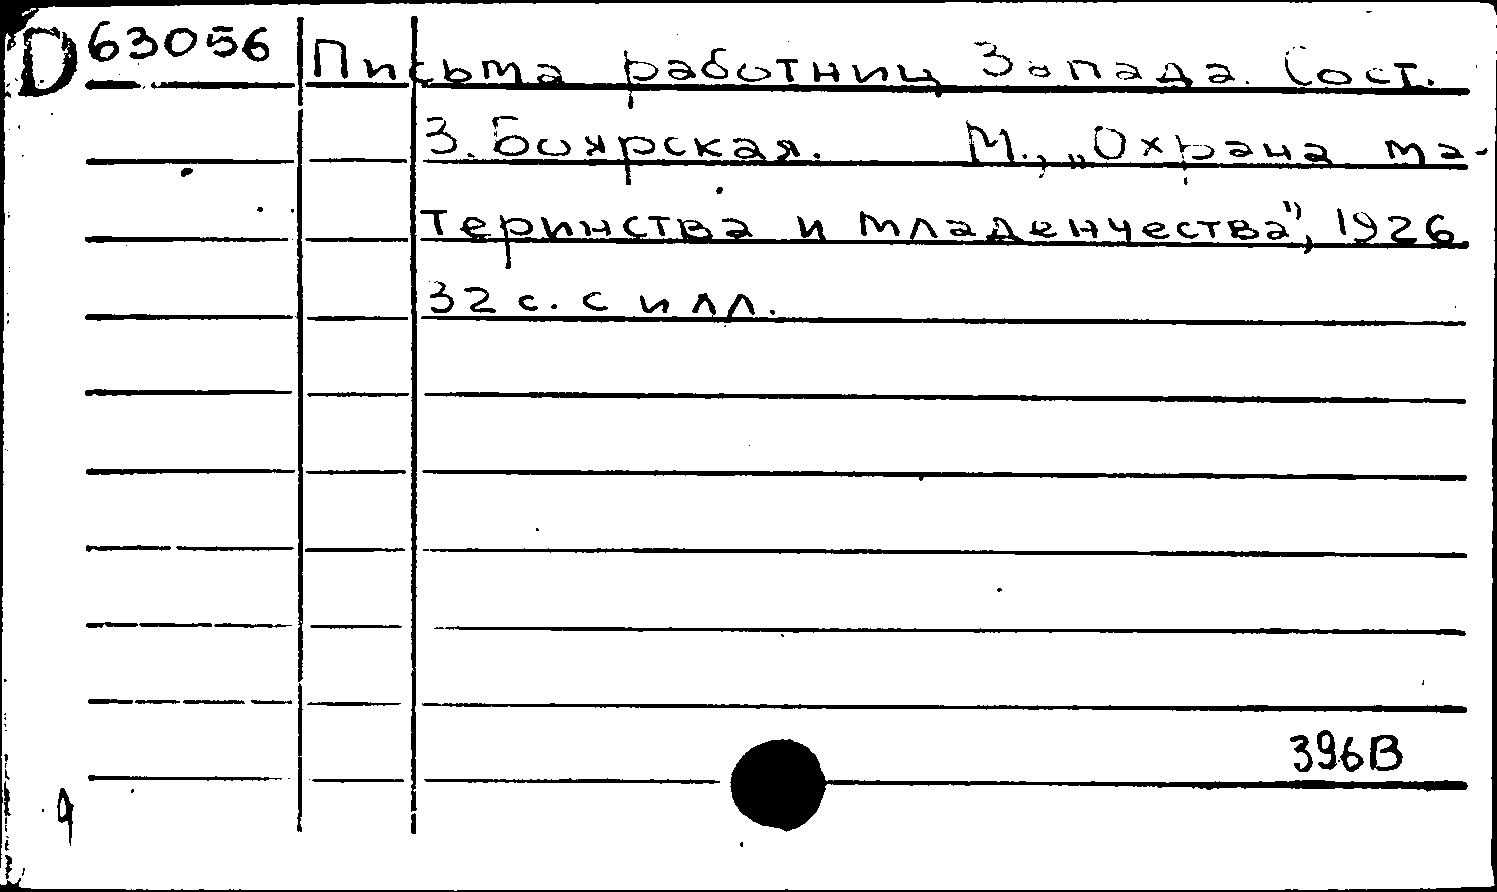 D 63056 Письма работниц Запада. Сост.
З. Боярская. М., „Охрана ма-
теринства и младенчества", 1926
32 с. с илл.
396В